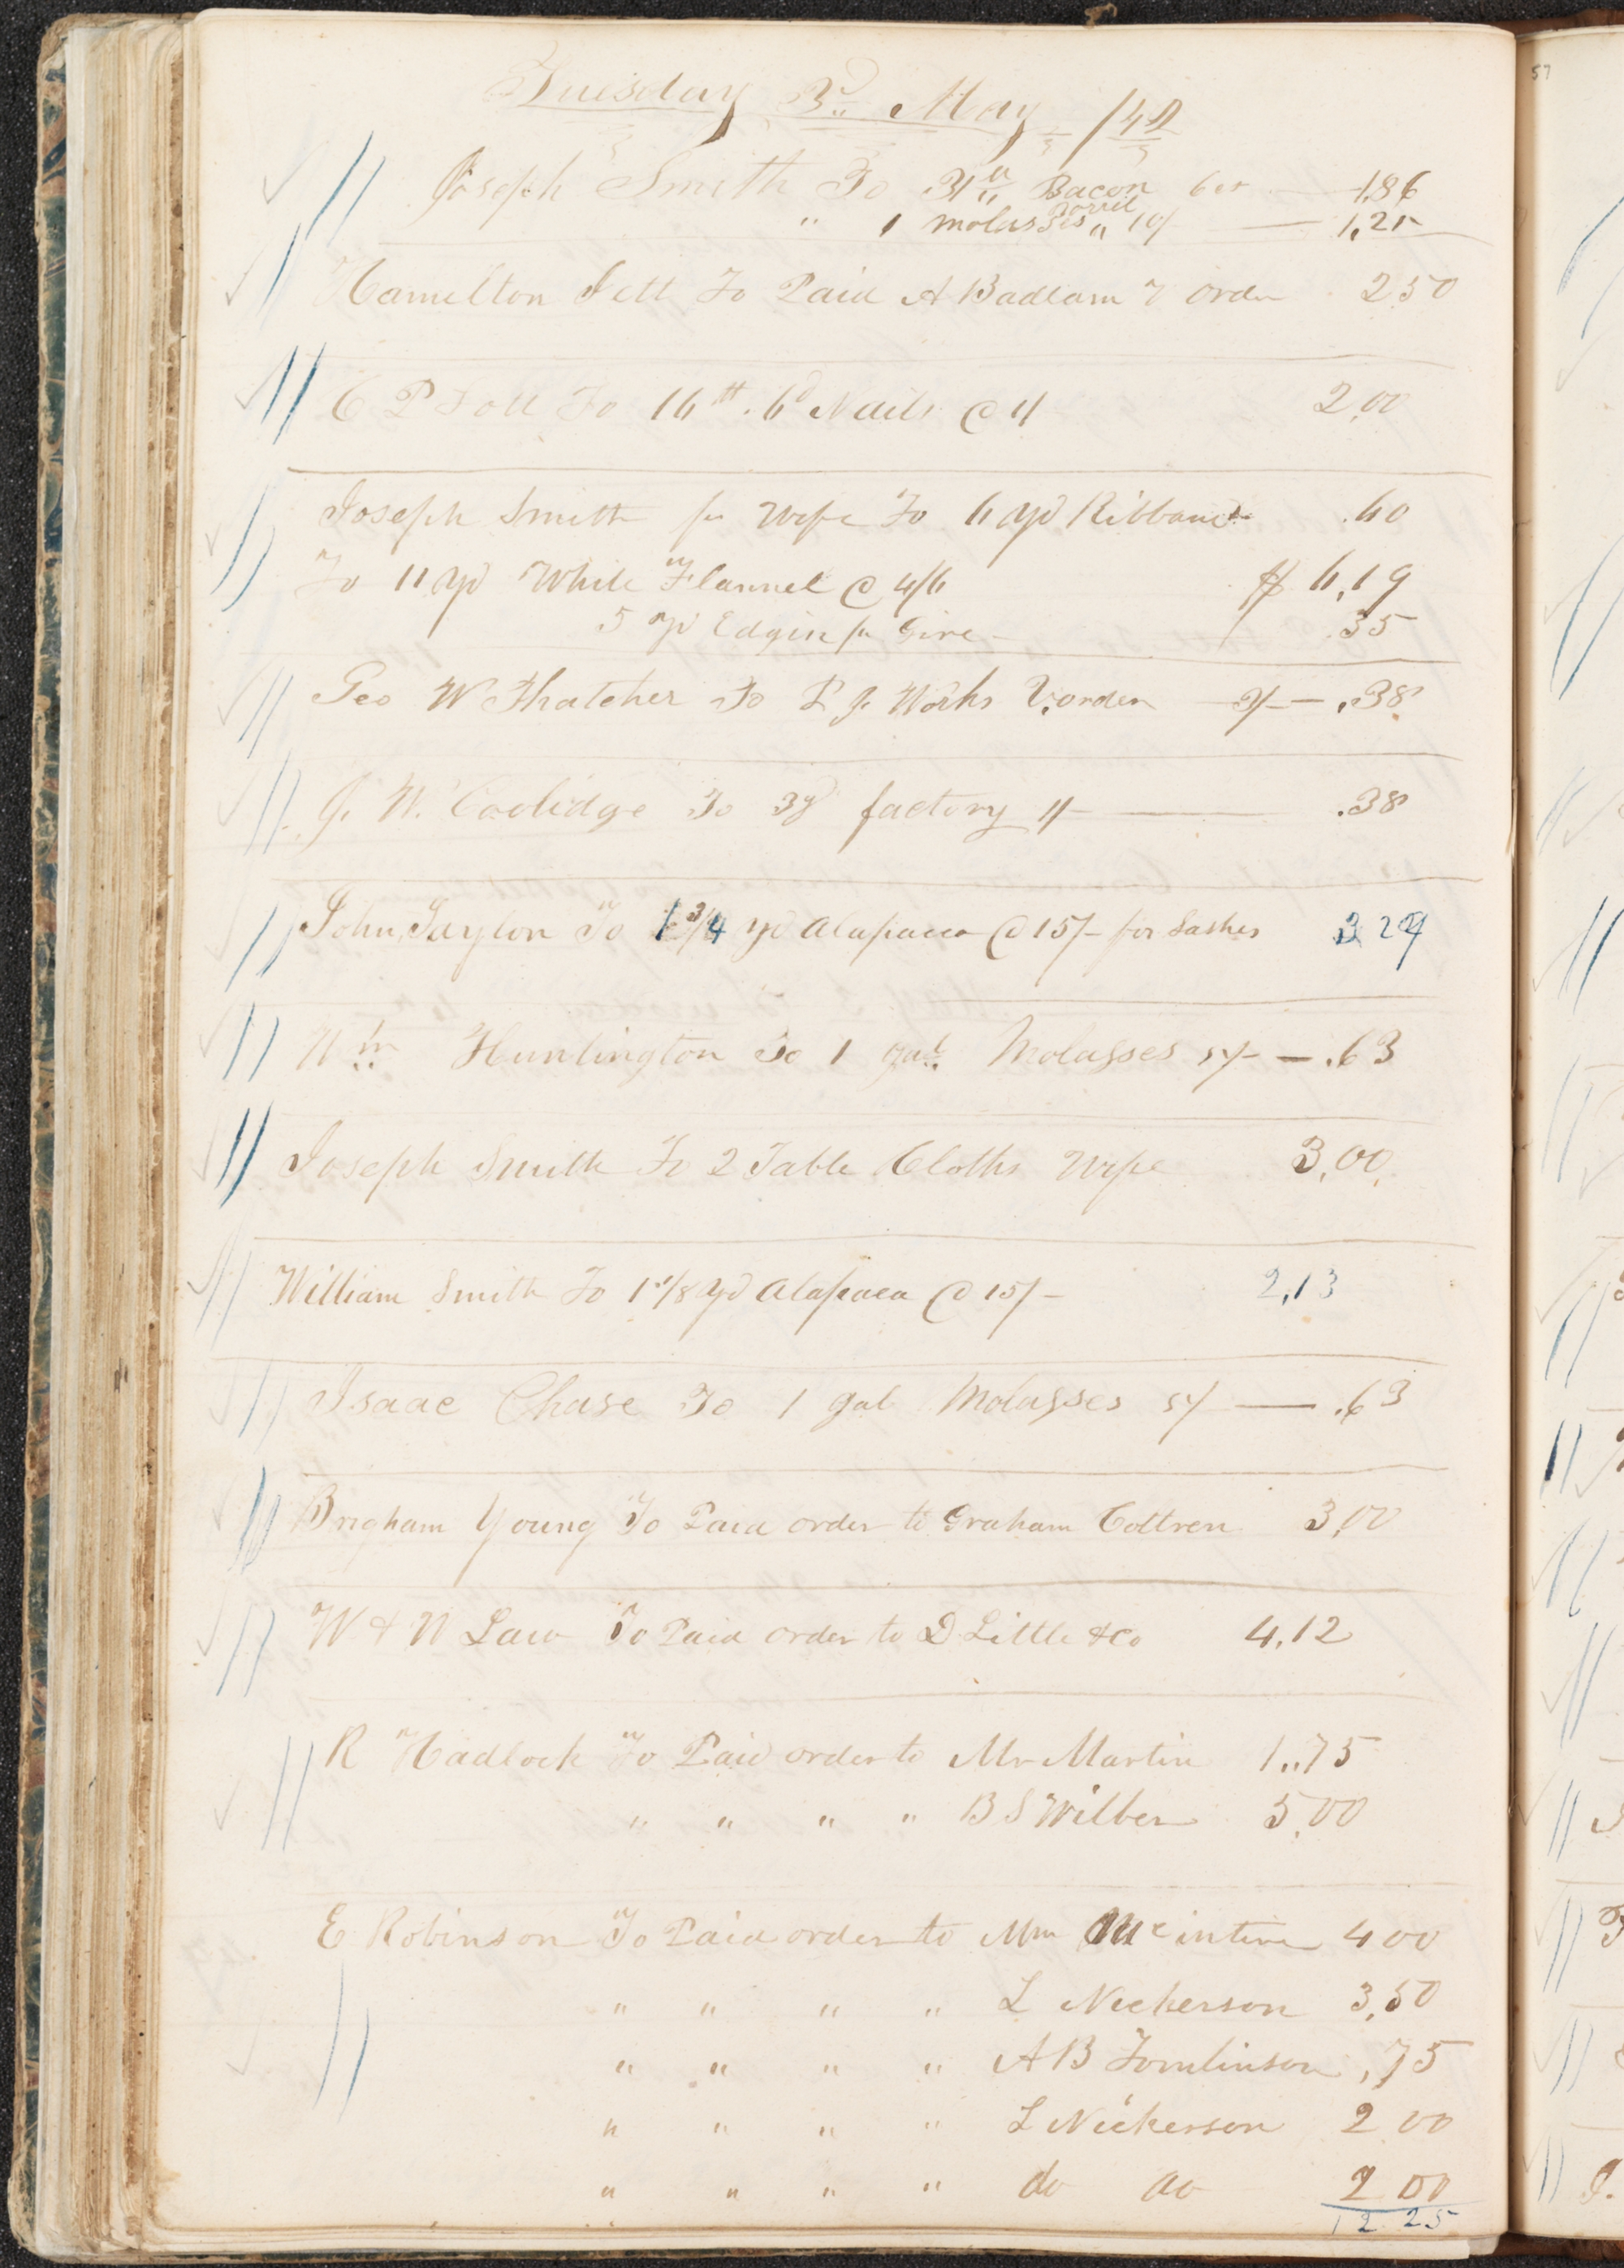 Tuesday 3d May /42
Joseph Smith To 31 lb Bacon 6 ct — 1.86
" 1 molasses " 10/ — 1,25
Hamilton Jett To Paid A Badlam order 2.50
C P Lott To 16 lb. 6d Nails @ 1/ 2.00
Joseph Smith for Wife To 6 yd Ribband .60
To 11 yd White Flannel @ 4/6 $ 6,19
5 yd Edgin for Give .35
Geo W Thatcher To P J Works order — 3/— .38
J. W. Coolidge To 3 yd factory 1/— .38
John Taylor To 1 3/4 yd Alapacca @ 15/- for Sashes 3 29
Wm Huntington To 1 gal Molasses 5/- — .63
Joseph Smith To 2 Table Cloths Wife 3,00
William Smith To 1 1/8 yd Alapaca @ 15/- 2,13
Isaac Chase To 1 gal Molasses 5/ — .63
Brigham Young To Paid order to Graham Coltren 3,00
W & W Law To Paid order to D Little & Co 4,12
R Hadlock To Paid order to Mr Martin 1,,75
" " " " B S Wilber 5.00
E Robinson To Paid order to Wm Mcintire 4 00
" " " " L Nickerson 3,50
" " " " A B Tomlinson ,75
" " " " L Nickerson 2 00
" " " " do do 2 00
12 25
57